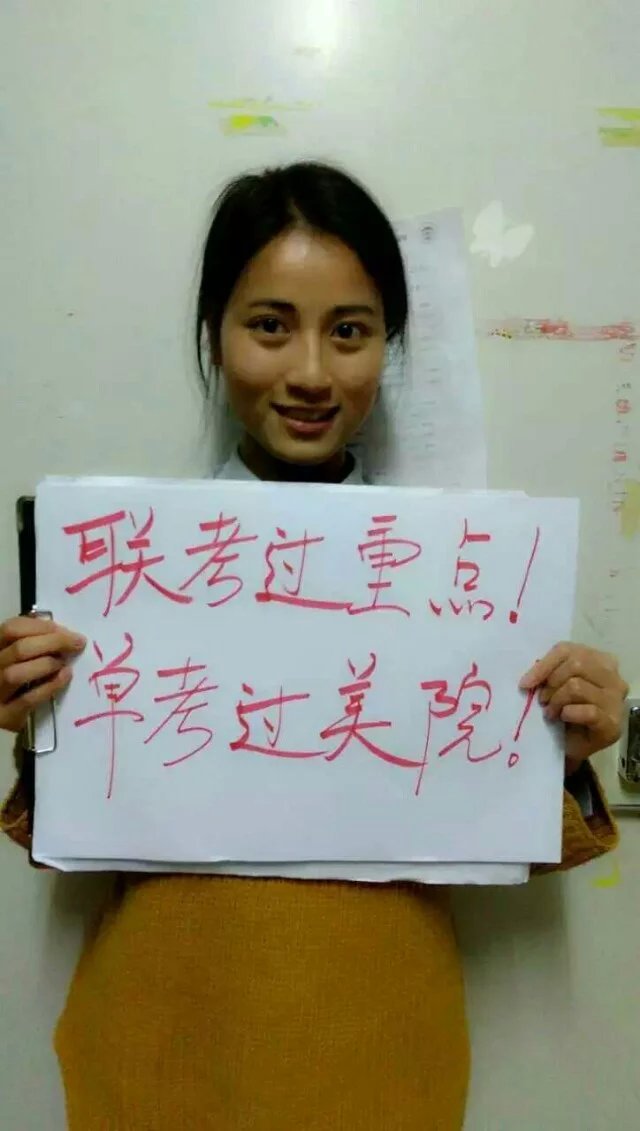 联考过重点!
单考过美院!